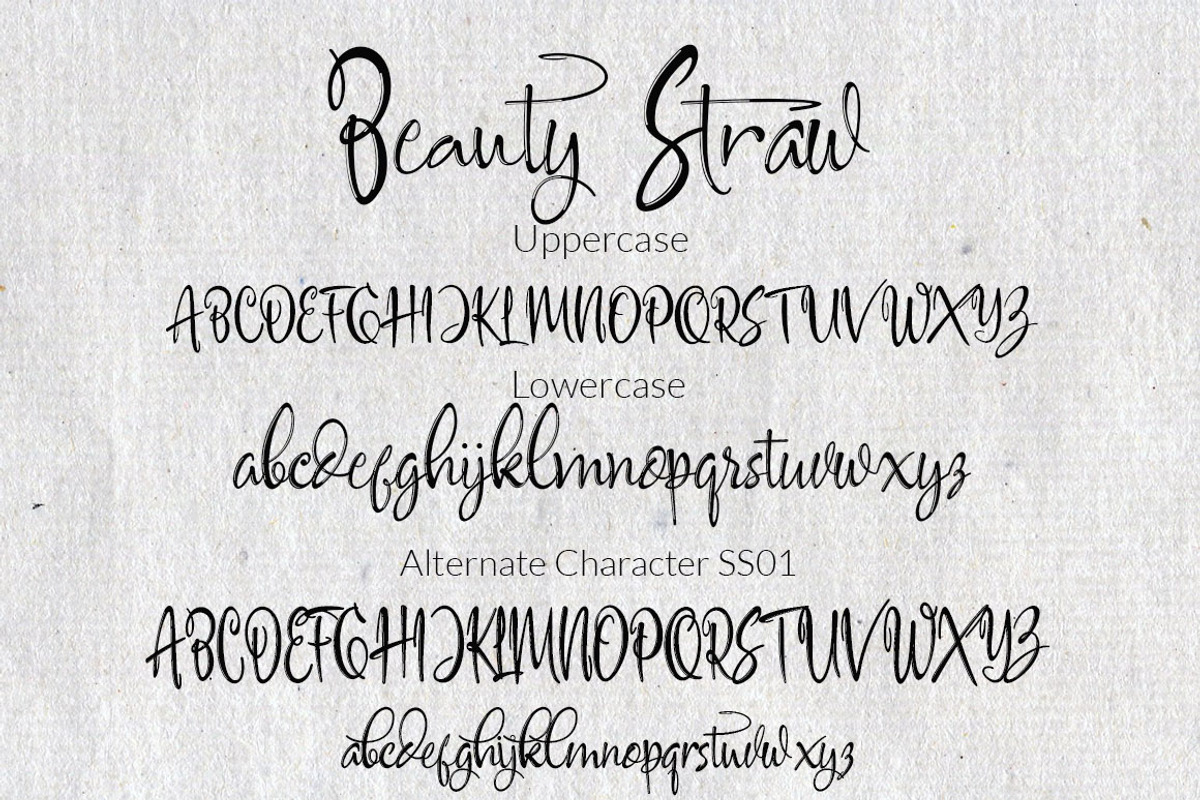 Beauty Straw
Uppercase
ABCDEFGHIJKLMNOPQRSTUVWXYZ
Lowercase
abcdefghijklmnopqrstuvwxyz
Alternate Character SS01
ABCDEFGHIJKLMNOPQRSTUVWXYZ
abcdefghijklmnopqrstuvwxyz